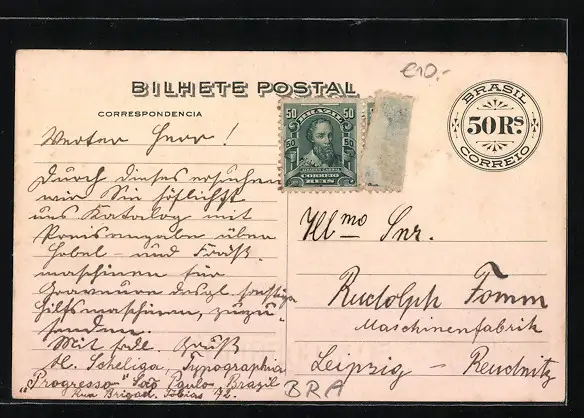 €10.-
BILHETE POSTAL
CORRESPONDENCIA
BRASIL
50 Rs
CORREIO
50 BRAZIL 50
50 50
CORREIO
REIS
Werter Herr!
Durch dieses ersuchen
wir Sie höflichst
uns Katalog mit
Preisangabe über
Hobel- und Fräß-
maschinen für
Graveure desgl. sonstige
Hilfsmaschinen, zuzu-
senden.
Mit frdl. Gruß
H. Scheliga, Typographia
"Progresso" São Paulo, Brazil
Rua Brigad. Tobias 72.
Illmo Snr.
Rudolph Fomm
Maschinenfabrik
Leipzig - Reudnitz
BRA